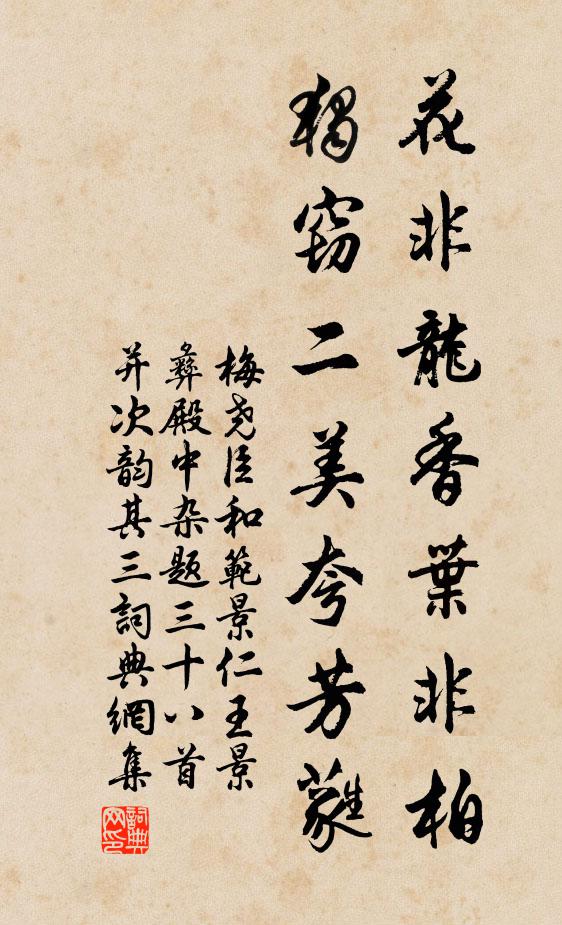 花非龍香葉非柏
獨窃二美夸芳蕤
梅尧臣和範景仁王景
彝殿中杂題三十八首
并次韵其三詞典網集
詞典网印